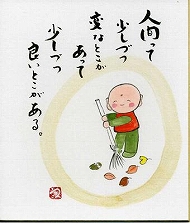 人間って
少しづつ
変なとこが
あって
少しづつ
良いとこがある。